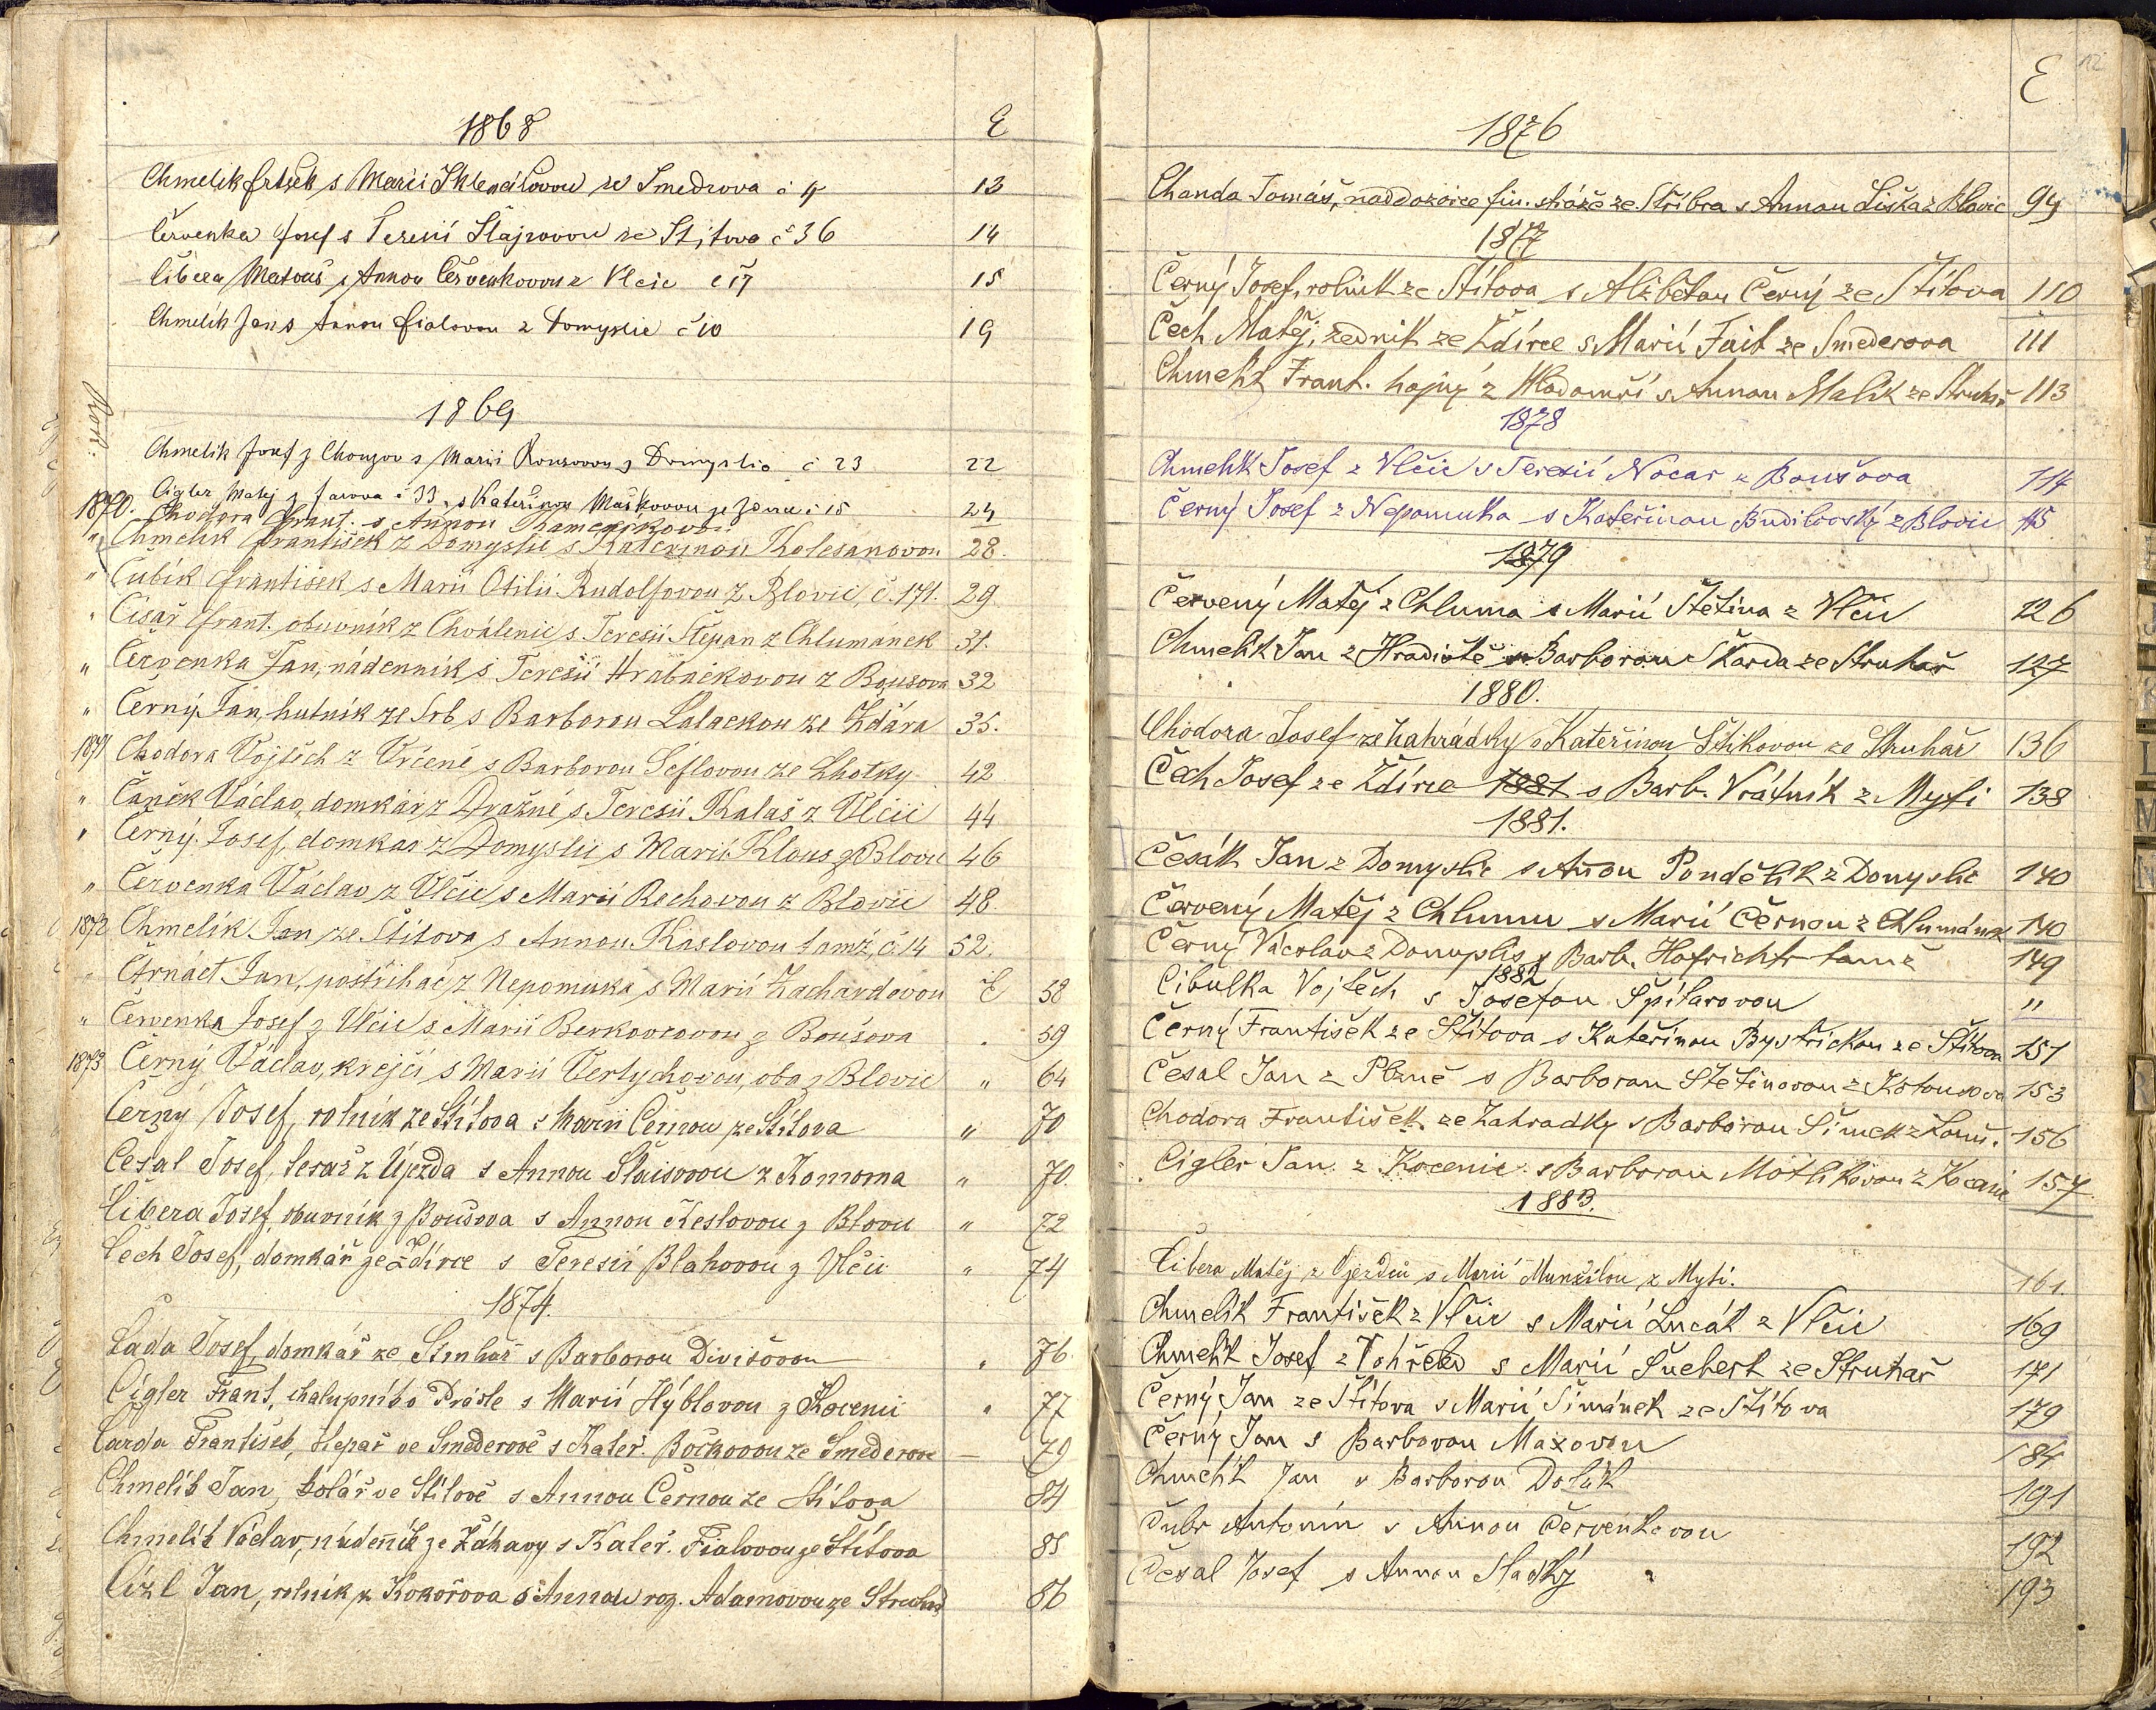 1868 E
Chmelik frtšek s Marii Sklenářovou ze Smedrova č 4 13
Červenka Josef s Terezii Štajrovou ze Štitova č 36 14
Čibera Matouš s Annou Červenkovou z Vlčic č 17 15
Chmelík Jan s Annou Fialovou z Domyslic č 10 19
Rok:
1869
Chmelik Josef z Chouzov s Marii Rouzovou z Domyslic č 23 22
Cigler Matej z Jarova č 33 s Kateřinou Maškovou ze č 15 24
1870. Chodora Frant. s Annou Kamenikovou
" Chmelik František z Domyslic s Kateřinou Kolesanovou 28.
" Čubík František s Marii Otilii Rudolfovou z Blovic, č. 171. 29
" Císař Frant. obuvník z Chválenic s Teresii Štěpan z Chlumánek 31.
" Červenka Jan, nádenník s Teresii Hrabáčkovou z Bousova 32
" Černý Jan, hutník ze Srb s Barborou Lalackou ze Ždára 35.
1871 Chodora Vojtěch z Vrčeně s Barborou Šéflovou ze Lhotky 42
" Čaněk Václav, domkář z Dražné s Teresii Kalaš z Vlčic 44
" Černý Josef, domkář z Domyslic s Marii Klous z Blovic 46
" Červenka Václav z Vlčic s Marii Rechovou z Blovic 48.
1872 Chmelík Jan ze Štítova s Annou Kaslovou tamž, č. 14 52.
" Čtrnáct Jan, postřihač z Nepomuka s Marii Zachardovou E 58
" Červenka Josef z Vlčic s Marii Berkovcovou z Boušova . 59
1873 Černý Václav, krejčí s Marii Vertychovou, oba z Blovic " 64
Černý Josef, rolník ze Štítova s Marii Černou ze Štítova " 70
Česal Josef, tesař z Újezda s Annou Šlaisovou z Komorna " 70.
Čibera Josef, obuvník z Boušova s Annou Keslovou z Blovic " 72
Čech Josef, domkář ze Ždírce s Teresii Blahovou z Vlčic " 74
1874.
Čada Josef, domkář ze Struhař s Barborou Divišovou " 76
Cígler Frant, chalupník o Prádle s Marii Hýblovou z Kocenic " 77
Čarda František, Hepař ve Smederově s Kateř. Bočkovou ze Smederova — 79
Chmelík Jan, kolář ve Štítově s Annou Černou ze Štítova 84
Chmelík Václav, nádeník ze Záhavy s Kateř. Fialovou ze Štítova 85
Čízl Jan, rolník z Kokořova s Annou roz. Adamovou ze Struhař 86
E 12
1876
Chanda Tomáš, naddozorce fin. stráže ze Stříbra s Annou Liška z Blovic 94
1877
Černý Josef, rolník ze Štítova s Alžbětou Černý ze Štítova 110
Čech Matěj, zedník ze Ždírce s Marii Fait ze Smederova 111
Chmelík Frant. hajný z Hladomří s Annou Malík ze Struhař 113
1878
Chmelík Josef z Vlčic s Terezií Nocar z Boušova 114
Černý Josef z Nepomuka s Kateřinou Budilovský z Blovic 115
1879
Červený Matěj z Chluma s Marií Štětina z Vlčic 126
Chmelík Jan z Hradiště s Barborou Škarda ze Struhař 127
1880.
Chodora Josef ze Zahrádky s Kateřinou Štikovou ze Struhař 136
Čech Josef ze Ždírce 1881 s Barb. Vrátník z Mytí 138
1881.
Česák Jan z Domyslic s Añou Pondělík z Domyslic 140
Červený Matěj z Chlumu s Marií Černou z Chlumánek 140
Černý Václav z Domyslic s Barb. Hofrichtr tamž 149
1882
Cibulka Vojtěch s Josefou Špílarovou "
Černý František ze Štítova s Kateřinou Bystřickou ze Štítova 151
Česal Jan z Plzně s Barborou Štětinovou z Kotousova 153
Chodora František ze Zahradky s Barborou Šimek z Louň. 156
Cigler Jan z Kocenic s Barborou Motlíkovou z Kocenic 157
1883.
Čibera Matěj z Ujezdu s Marií Munzilou z Mytí. 161.
Chmelík František z Vlčic s Marií Lucák z Vlčic 169
Chmelík Josef z Vohřeled s Marií Šuchert ze Struhař 171
Černý Jan ze Štítova s Marií Šimánek ze Štítova 179
Černý Jan s Barborou Maxovou 184
Chmelík Jan s Barborou Dolák 191
Čubr Antonín s Annou Červenkovou 192
Česal Josef s Annou Sladký 193